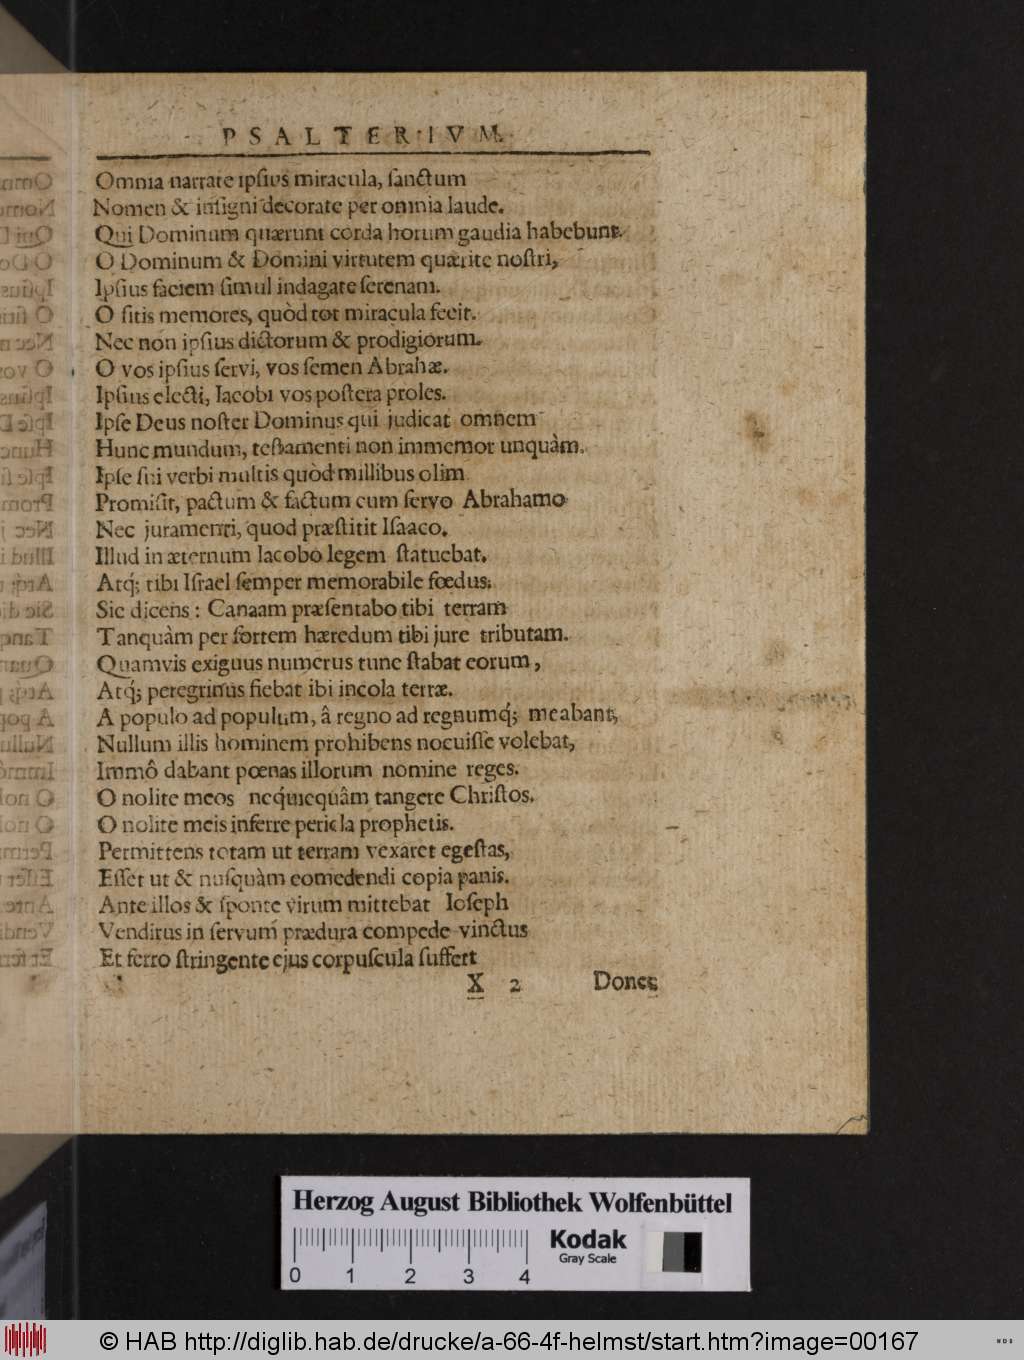 PSALTERIVM.
Omnia narrate ipſius miracula, ſanctum
Nomen & inſigni decorate per omnia laude.
Qui Dominum quærunt corda horum gaudia habebunt.
O Dominum & Domini virtutem quærite noſtri,
Ipſius faciem ſimul indagate ſerenam.
O ſitis memores, quòd tot miracula fecit.
Nec non ipſius dictorum & prodigiorum.
O vos ipſius ſervi, vos ſemen Abrahæ.
Ipſius electi, Iacobi vos poſtera proles.
Ipſe Deus noſter Dominus qui judicat omnem
Hunc mundum, teſtamenti non immemor unquàm.
Ipſe ſui verbi multis quòd millibus olim
Promiſit, pactum & factum cum ſervo Abrahamo
Nec juramenti, quod præſtitit Iſaaco.
Illud in æternum Iacobo legem ſtatuebat.
Atq́; tibi Iſrael ſemper memorabile fœdus.
Sic dicens : Canaam præſentabo tibi terram
Tanquàm per ſortem hæredum tibi jure tributam.
Quamvis exiguus numerus tunc ſtabat eorum,
Atq́; peregrinus fiebat ibi incola terræ.
A populo ad populum, â regno ad regnumq́; meabant,
Nullum illis hominem prohibens nocuiſſe volebat,
Immô dabant pœnas illorum nomine reges.
O nolite meos neq́uicquâm tangere Chriſtos.
O nolite meis inferre pericla prophetis.
Permittens totam ut terram vexaret egeſtas,
Eſſet ut & nuſquàm comedendi copia panis.
Ante illos & ſponte virum mittebat Ioſeph
Venditus in ſervum prædura compede vinctus
Et ferro ſtringente ejus corpuſcula ſuffert
X 2 Donec
Herzog August Bibliothek Wolfenbüttel
0 1 2 3 4
Kodak
Gray Scale
© HAB http://diglib.hab.de/drucke/a-66-4f-helmst/start.htm?image=00167